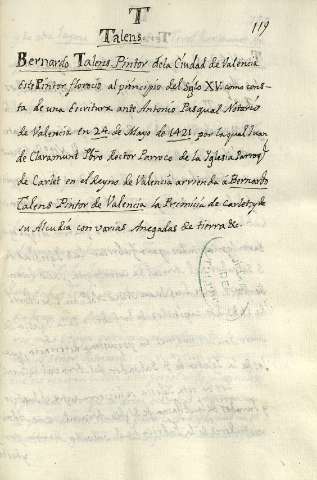 T
119
Talens
Bernardo Talens Pintor de la Ciudad de Valencia
Este Pintor florecio al principio del Siglo XV. como cons-
ta de una Escritura ante Antonio Pasqual Notario
de Valencia en 24 de Mayo de 1421 por la qual Juan
de Claramunt Pbro Rector Parroco de la Iglesia Parroql
de Carlet en el Reyno de Valencia arrienda à Bernardo
Talens Pintor de Valencia la Primicia de Carlet y de
su Alcudia con varias Anegadas de tierra &c.